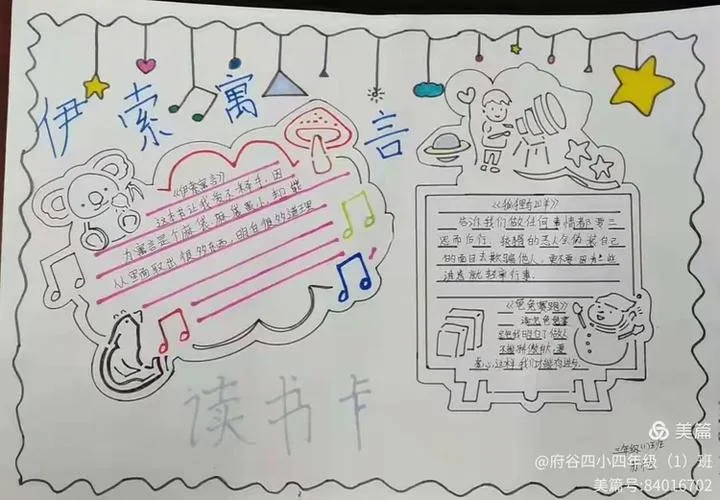 伊索寓言
《伊索寓言》
这本书让我爱不释手,因
为寓言是个麻袋,麻袋虽小,却能
从里面取出很多东西,明白很多道理
《狐狸和山羊》
告诉我们做任何事情都要三
思而后行,狡猾的恶人会伪装自己
的面目去欺骗他人,更不要因为一些
消息就轻率行事.
《龟兔赛跑》
读书卡
美篇
@府谷四小四年级（1）班
美篇号:84016702